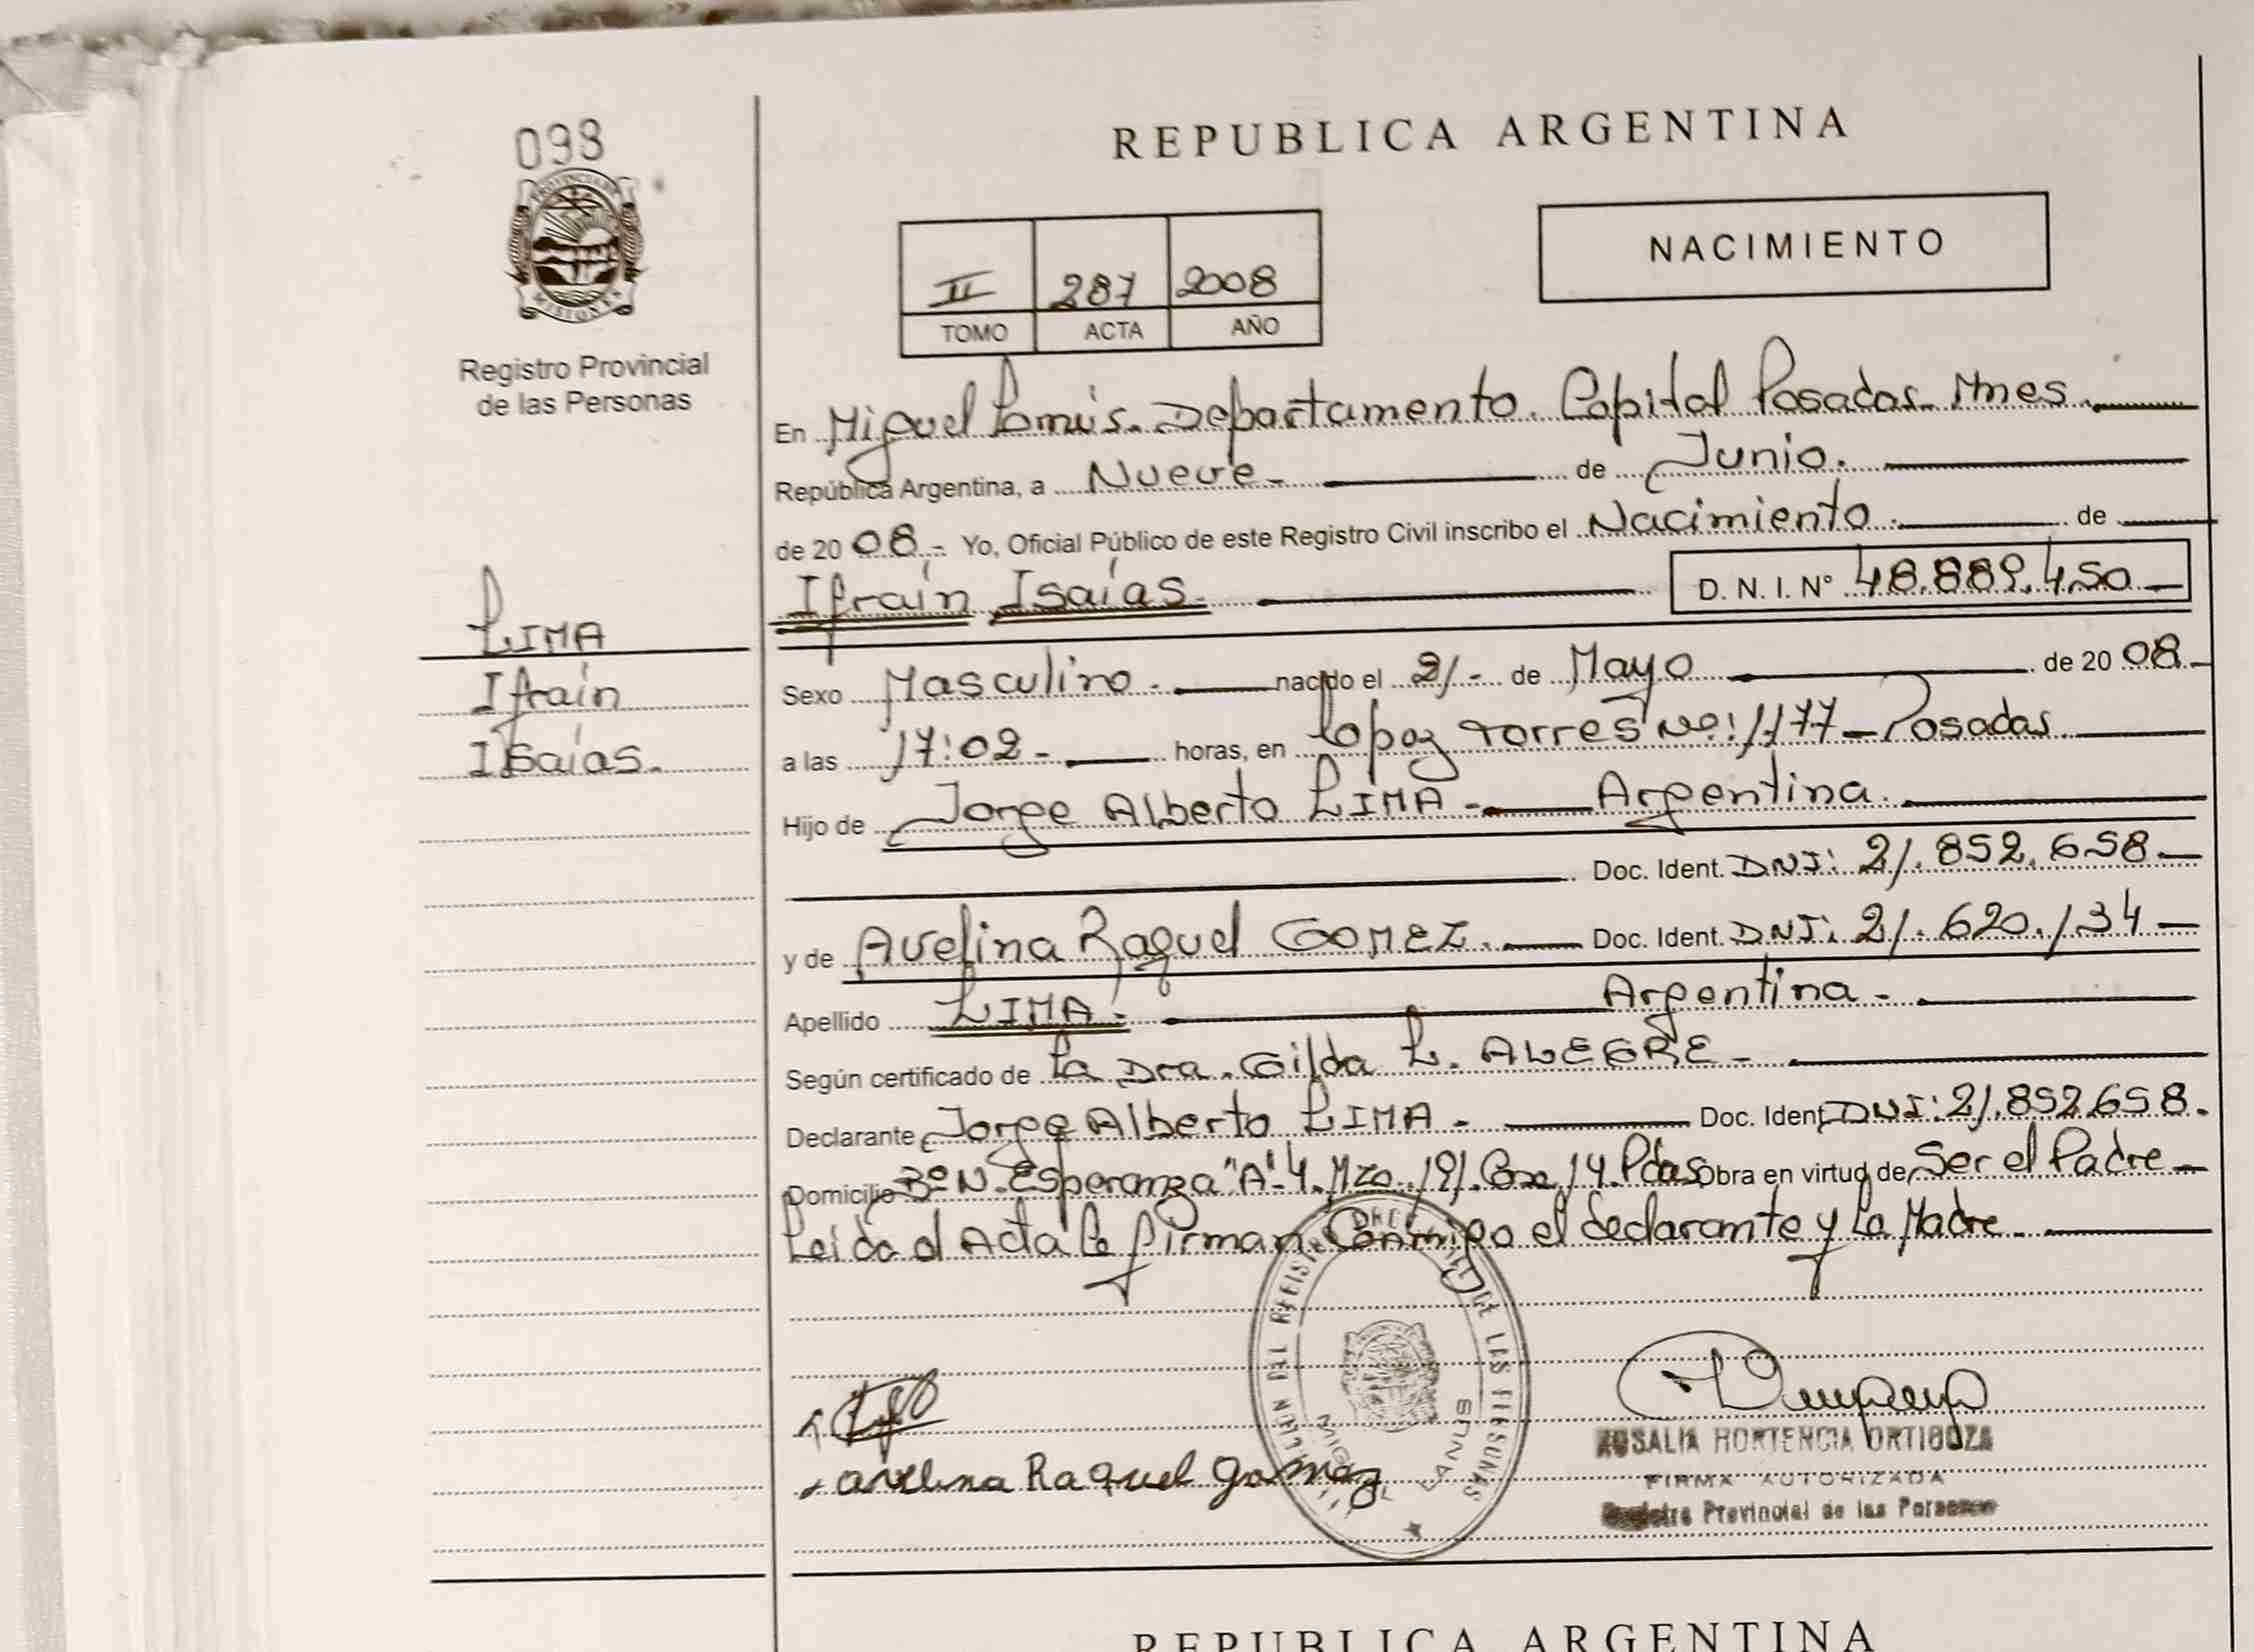 098
PROVINCIA DE
MISIONES
Registro Provincial
de las Personas
LIMA
Ifraín
Isaías.
REPUBLICA ARGENTINA
NACIMIENTO
II 287 2008
TOMO ACTA AÑO
En Miguel Lanús. Departamento. Capital Posadas. Mnes.
República Argentina, a Nueve - de Junio.
de 2008.- Yo, Oficial Público de este Registro Civil inscribo el Nacimiento. de
Ifraín Isaías. D. N. I. N° 48.889.450
Sexo Masculino. nacido el 21.- de Mayo de 2008.
a las 17:02 - horas, en Lopez Torres Nº: 1177 - Posadas
Hijo de Jorge Alberto LIMA - Argentina.
Doc. Ident. DNI: 21.852.658
y de Avelina Raquel GOMEZ. Doc. Ident. DNI: 21.620.134
Apellido LIMA. Argentina -
Según certificado de La Dra. Gilda L. ALEGRE -
Declarante Jorge Alberto LIMA - Doc. Ident. DNI: 21.852.658.
Domicilio Bº N. Esperanza "A" 4. Mza. 191. 14. Pdas Obra en virtud de Ser el Padre
Leida el Acta la firman Conmigo el declarante y La Madre.
REGISTRO DE LAS PERSONAS
MIGUEL LANUS
Avelina Raquel Gomez
ROSALIA HORTENCIA ORTIGOZA
FIRMA AUTORIZADA
Registro Provincial de las Personas
REPUBLICA ARGENTINA